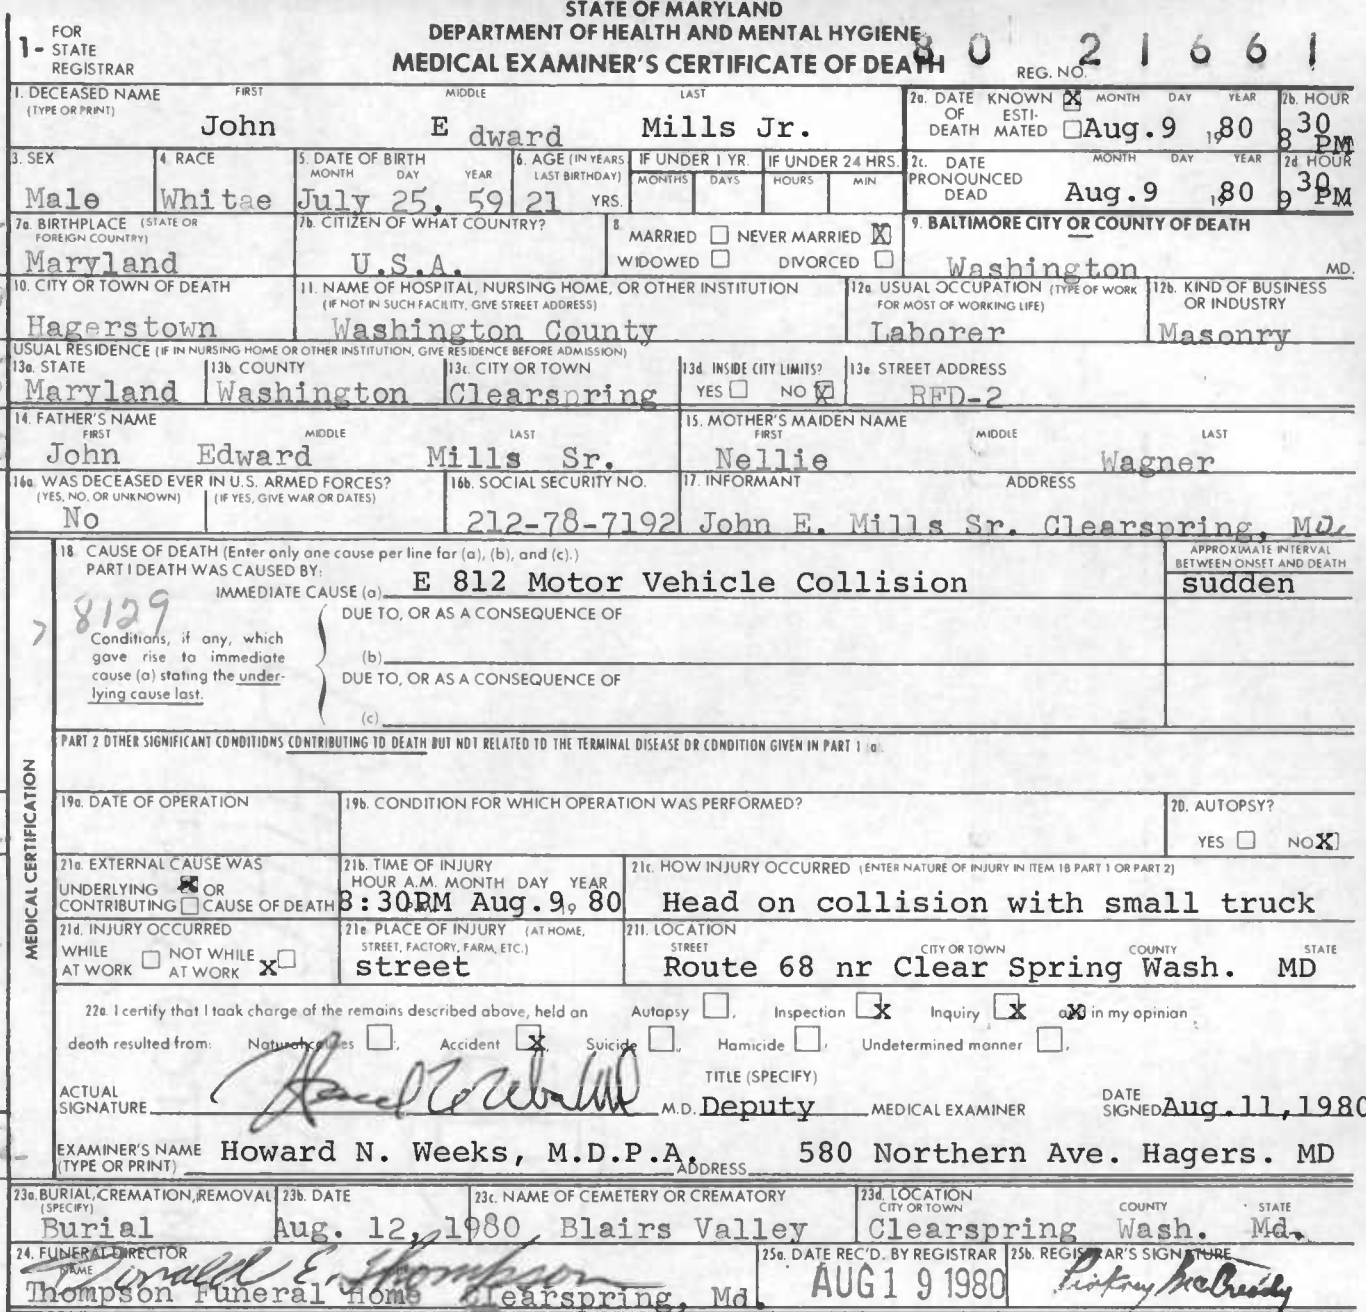 STATE OF MARYLAND
DEPARTMENT OF HEALTH AND MENTAL HYGIENE
MEDICAL EXAMINER'S CERTIFICATE OF DEATH
1- FOR STATE REGISTRAR
REG. NO. 80 21661
1. DECEASED NAME (TYPE OR PRINT) FIRST MIDDLE LAST
John E dward Mills Jr.
2a. DATE OF DEATH KNOWN X ESTIMATED MONTH DAY YEAR
Aug. 9 1980
2b. HOUR
8 30 PM
3. SEX
Male
4. RACE
Whitae
5. DATE OF BIRTH MONTH DAY YEAR
July 25, 59
6. AGE (IN YEARS LAST BIRTHDAY)
21 YRS.
IF UNDER 1 YR. MONTHS DAYS
IF UNDER 24 HRS. HOURS MIN
2c. DATE PRONOUNCED DEAD MONTH DAY YEAR
Aug. 9 1980
2d HOUR
9 30 PM
7a. BIRTHPLACE (STATE OR FOREIGN COUNTRY)
Maryland
7b. CITIZEN OF WHAT COUNTRY?
U.S.A.
8. MARRIED NEVER MARRIED X
WIDOWED DIVORCED
9. BALTIMORE CITY OR COUNTY OF DEATH
Washington MD.
10. CITY OR TOWN OF DEATH
Hagerstown
11. NAME OF HOSPITAL, NURSING HOME, OR OTHER INSTITUTION
(IF NOT IN SUCH FACILITY, GIVE STREET ADDRESS)
Washington County
12a. USUAL OCCUPATION (TYPE OF WORK FOR MOST OF WORKING LIFE)
Laborer
12b. KIND OF BUSINESS OR INDUSTRY
Masonry
USUAL RESIDENCE (IF IN NURSING HOME OR OTHER INSTITUTION, GIVE RESIDENCE BEFORE ADMISSION)
13a. STATE
Maryland
13b. COUNTY
Washington
13c. CITY OR TOWN
Clearspring
13d. INSIDE CITY LIMITS?
YES NO X
13e. STREET ADDRESS
RFD-2
14. FATHER'S NAME FIRST MIDDLE LAST
John Edward Mills Sr.
15. MOTHER'S MAIDEN NAME FIRST MIDDLE LAST
Nellie Wagner
16a. WAS DECEASED EVER IN U.S. ARMED FORCES?
(YES, NO, OR UNKNOWN) (IF YES, GIVE WAR OR DATES)
No
16b. SOCIAL SECURITY NO.
212-78-7192
17. INFORMANT ADDRESS
John E. Mills Sr. Clearspring, Md.
MEDICAL CERTIFICATION
18. CAUSE OF DEATH (Enter only one cause per line for (a), (b), and (c).)
PART I DEATH WAS CAUSED BY:
IMMEDIATE CAUSE (a) E 812 Motor Vehicle Collision
APPROXIMATE INTERVAL BETWEEN ONSET AND DEATH
sudden
8129
Conditions, if any, which gave rise to immediate cause (a) stating the underlying cause last.
DUE TO, OR AS A CONSEQUENCE OF
(b)
DUE TO, OR AS A CONSEQUENCE OF
(c)
PART 2 OTHER SIGNIFICANT CONDITIONS CONTRIBUTING TO DEATH BUT NOT RELATED TO THE TERMINAL DISEASE OR CONDITION GIVEN IN PART 1 (a).
19a. DATE OF OPERATION
19b. CONDITION FOR WHICH OPERATION WAS PERFORMED?
20. AUTOPSY?
YES NO X
21a. EXTERNAL CAUSE WAS
UNDERLYING X OR
CONTRIBUTING CAUSE OF DEATH
21b. TIME OF INJURY
HOUR A.M. MONTH DAY YEAR
8:30PM Aug. 9, 19 80
21c. HOW INJURY OCCURRED (ENTER NATURE OF INJURY IN ITEM 18 PART 1 OR PART 2)
Head on collision with small truck
21d. INJURY OCCURRED
WHILE AT WORK NOT WHILE AT WORK X
21e. PLACE OF INJURY (AT HOME, STREET, FACTORY, FARM, ETC.)
street
21f. LOCATION
STREET CITY OR TOWN COUNTY STATE
Route 68 nr Clear Spring Wash. MD
22a. I certify that I took charge of the remains described above, held an Autopsy , Inspection X Inquiry X and in my opinion
death resulted from: Natural causes , Accident X, Suicide , Homicide , Undetermined manner .
ACTUAL SIGNATURE M.D.
TITLE (SPECIFY)
Deputy MEDICAL EXAMINER
DATE SIGNED Aug. 11, 1980
EXAMINER'S NAME (TYPE OR PRINT) Howard N. Weeks, M.D.P.A.
ADDRESS 580 Northern Ave. Hagers. MD
23a. BURIAL, CREMATION, REMOVAL (SPECIFY)
Burial
23b. DATE
Aug. 12, 1980
23c. NAME OF CEMETERY OR CREMATORY
Blairs Valley
23d. LOCATION CITY OR TOWN COUNTY STATE
Clearspring Wash. Md.
24. FUNERAL DIRECTOR NAME
Donald E. Thompson
Thompson Funeral Home Clearspring, Md.
25a. DATE REC'D. BY REGISTRAR
AUG 19 1980
25b. REGISTRAR'S SIGNATURE